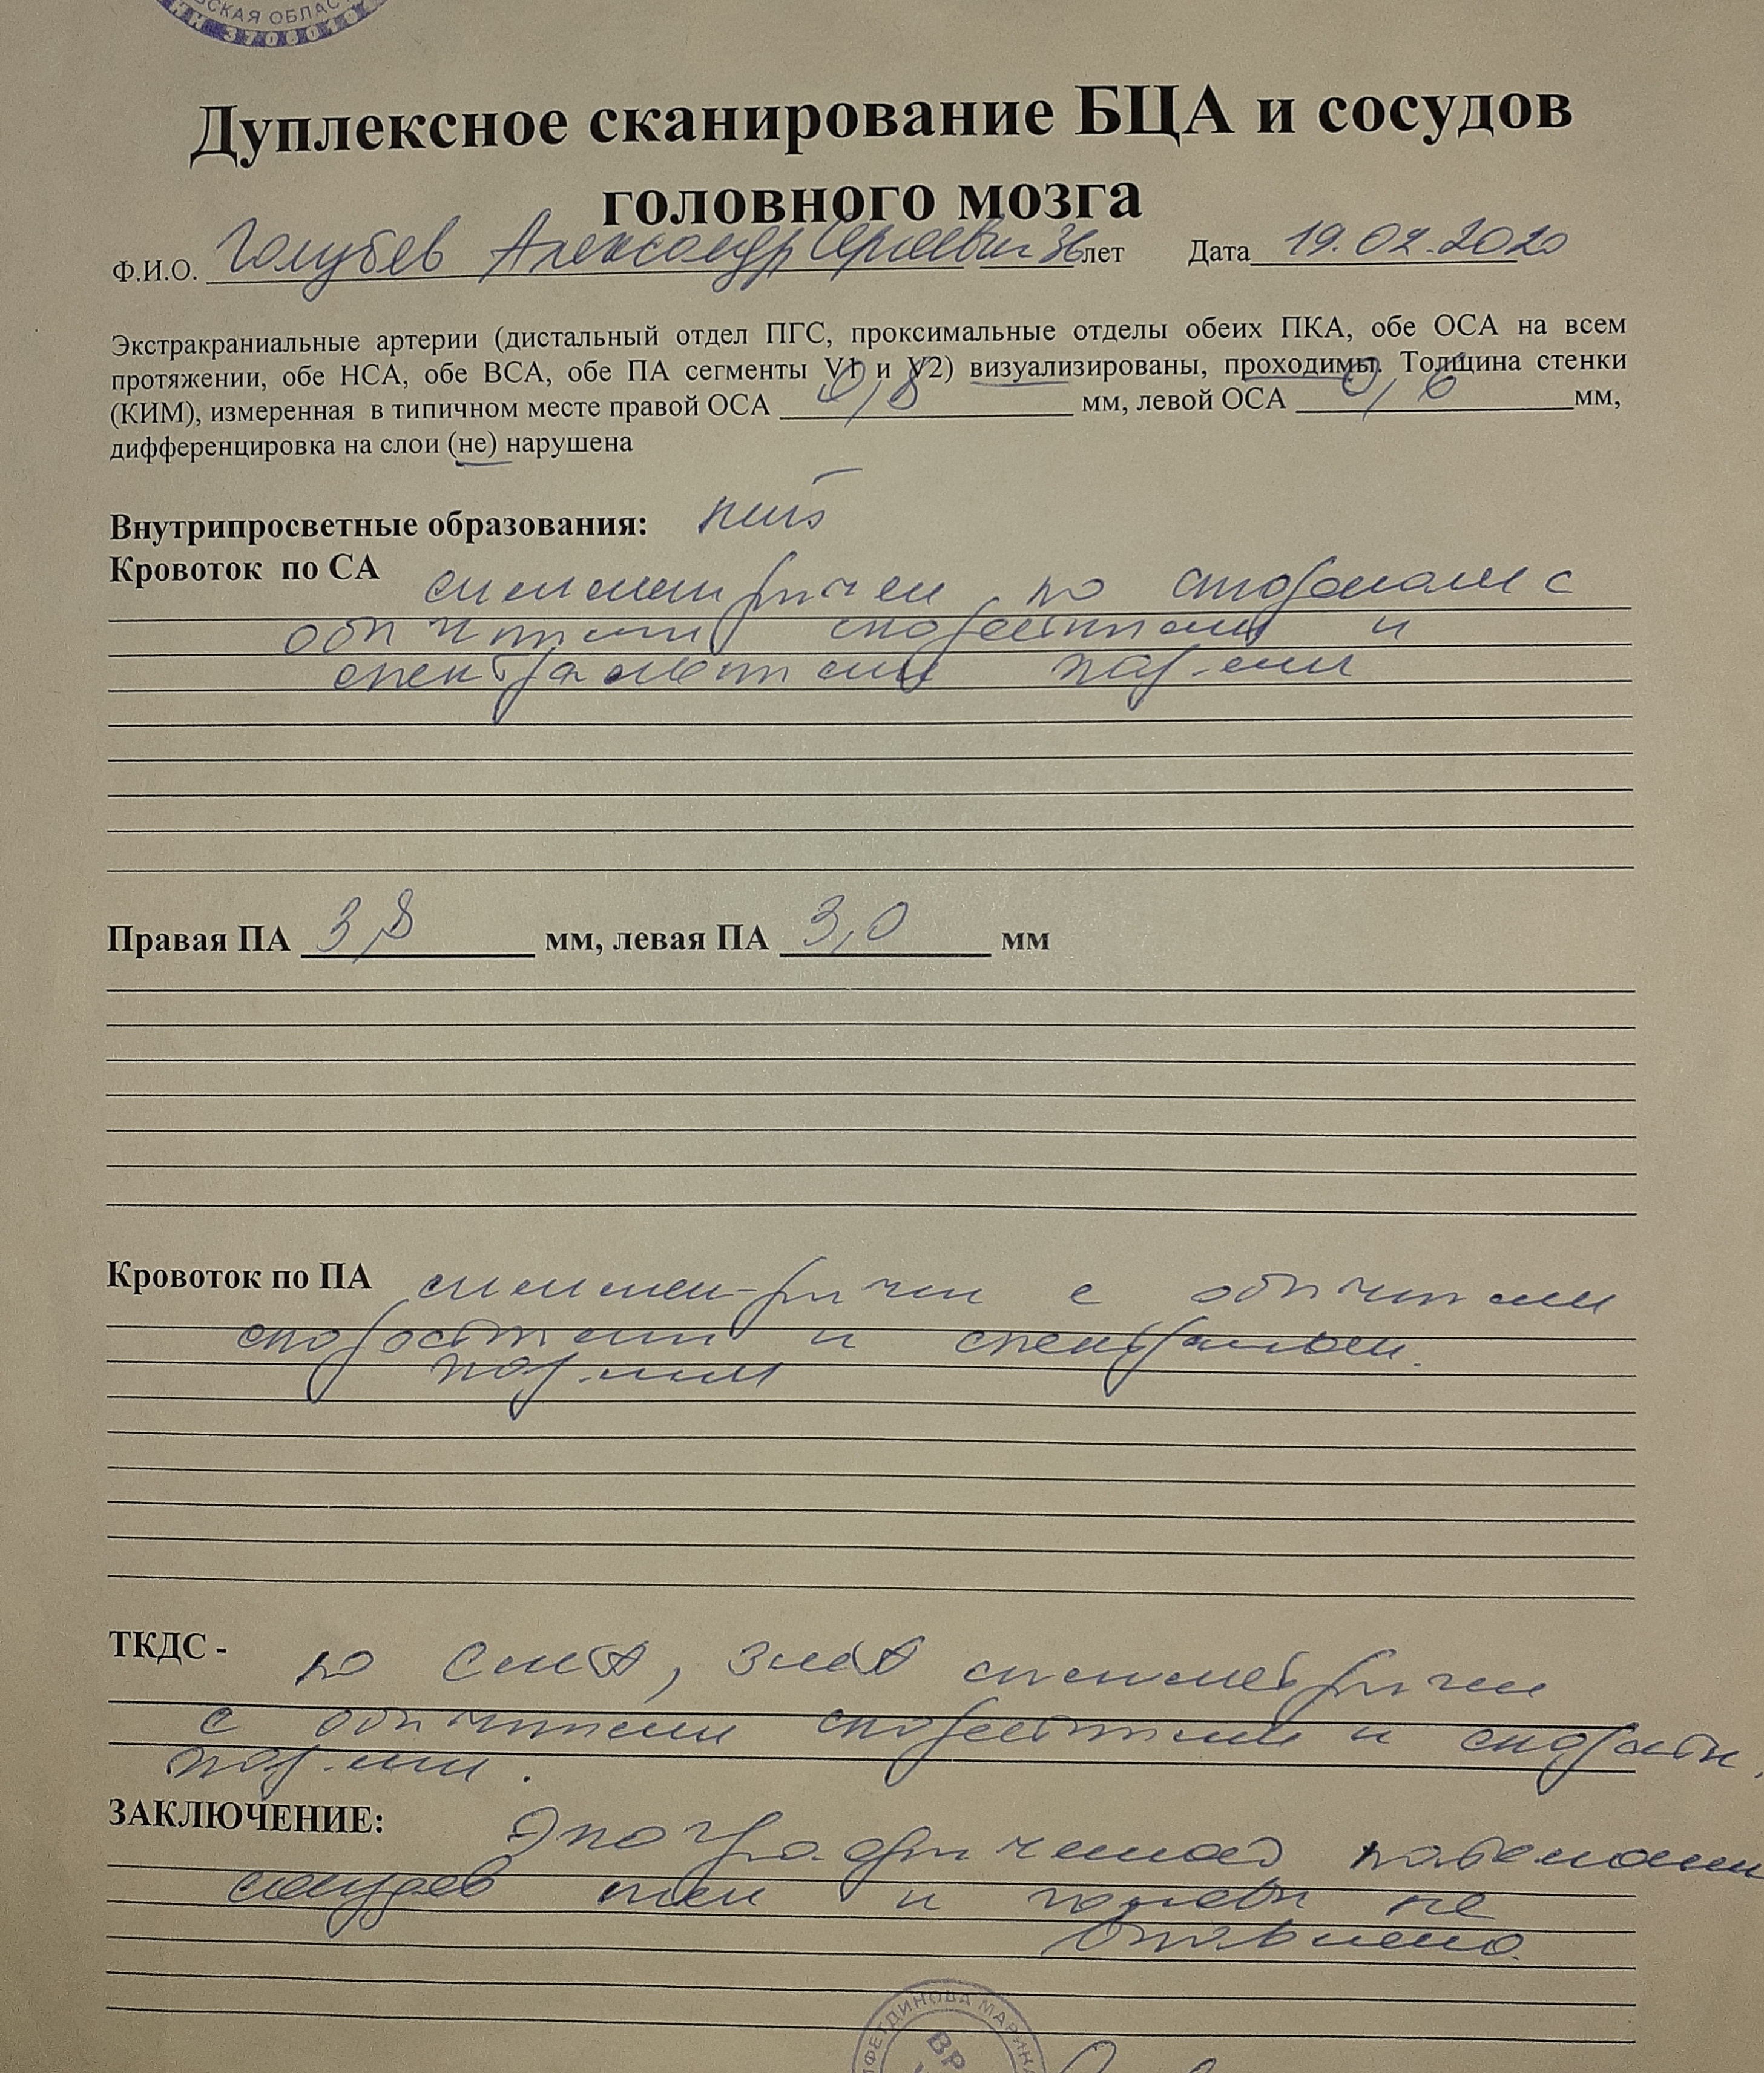 СКАЯ ОБЛАС
ИНН 3706010
Дуплексное сканирование БЦА и сосудов
головного мозга
Ф.И.О. Голубев Александр Сергеевич 36 лет Дата 19.02.2020
Экстракраниальные артерии (дистальный отдел ПГС, проксимальные отделы обеих ПКА, обе ОСА на всем
протяжении, обе НСА, обе ВСА, обе ПА сегменты V1 и V2) визуализированы, проходимы. Толщина стенки
(КИМ), измеренная в типичном месте правой ОСА 0,8 мм, левой ОСА 0,6 мм,
дифференцировка на слои (не) нарушена
Внутрипросветные образования: нет
Кровоток по СА симметричен по сторонам с
обычными скоростными и
спектральными пар-ми
Правая ПА 3,8 мм, левая ПА 3,0 мм
Кровоток по ПА симметричен с обычными
скоростными и спектральн.
пар-ми
ТКДС - по СМА, ЗМА симметричен
с обычными скоростными и
пар-ми.
ЗАКЛЮЧЕНИЕ: Эхографически
сосудов шеи и головы не
выявлено.
ФЕТДИНОВА МАРИНА
ВР